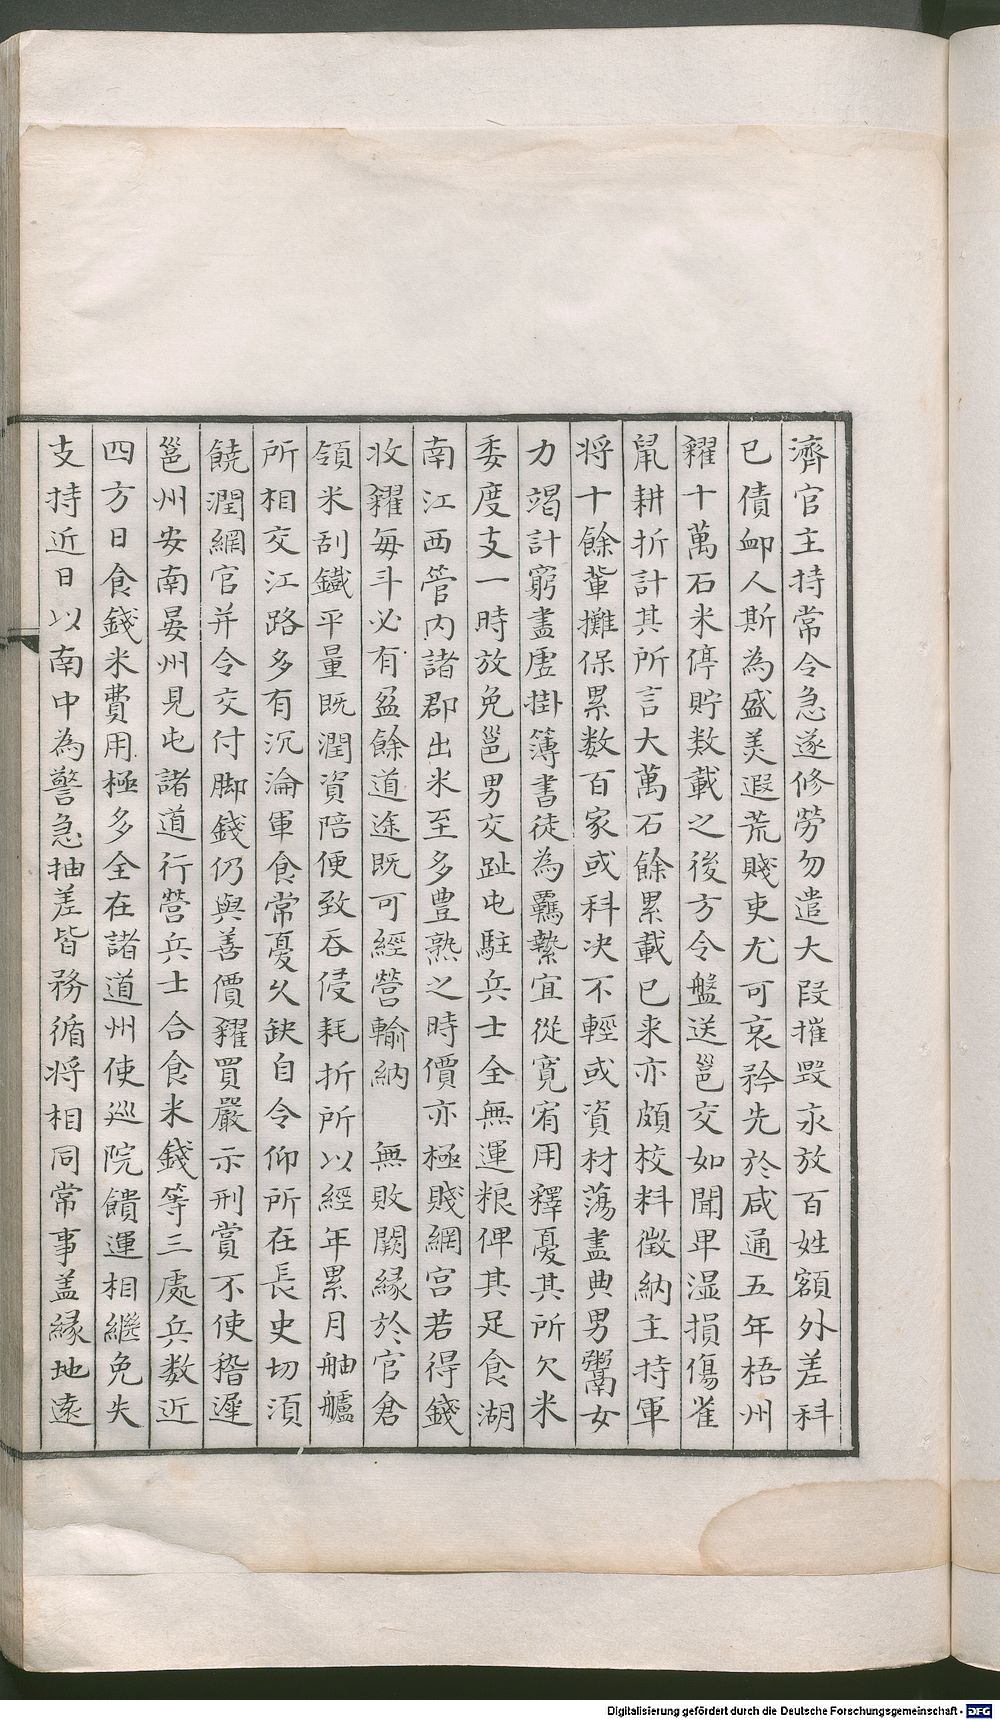 濟官主持常令急遂修勞勿遣大段摧毀永放百姓額外差科
已債卹人斯為盛美遐荒賤吏尤可哀矜先於咸通五年梧州
糴十萬石米停貯数載之後方令盤送邕交如聞卑湿損傷雀
鼠耕折計其所言大萬石餘累載已来亦頗校料徵納主持軍
将十餘輩攤保累数百家或科决不輕或資材蕩盡典男鬻女
力竭計窮盡虚掛簿書徒為羈縶宜從寛宥用釋憂其所欠米
委度支一時放免邕男交趾屯駐兵士全無運粮俾其足食湖
南江西管内諸郡出米至多豊熟之時價亦極賤綱官若得錢
收糴每斗必有盆餘道途既可經營輸納　無敗闕縁於官倉
領米刮鐵平量既潤資陪便致吞侵耗折所以經年累月舳艫
所相交江路多有沉淪軍食常憂久缺自令仰所在長史切須
饒潤綱官并令交付脚錢仍與善價糴買嚴示刑賞不使稽遅
邕州安南晏州見屯諸道行營兵士合食米錢等三處兵数近
四方日食錢米費用極多全在諸道州使巡院饋運相繼免失
支持近日以南中為警急抽差皆務循将相同常事盖縁地遠
Digitalisierung gefördert durch die Deutsche Forschungsgemeinschaft - DFG